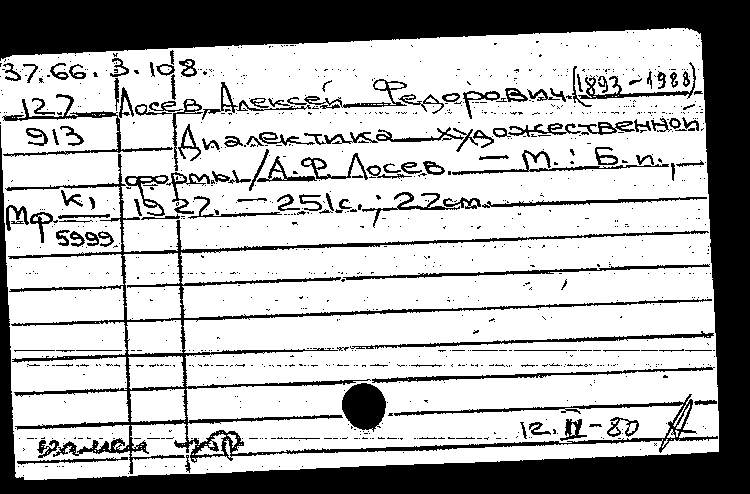 37.66.3.108.
127 Лосев, Алексей Федорович (1893-1988)
913 Диалектика художественной
формы / А.Ф. Лосев. — М.: Б.и.,
Мф. К1/5999 1927. — 251с.; 22см.
взамен
12.IV-80